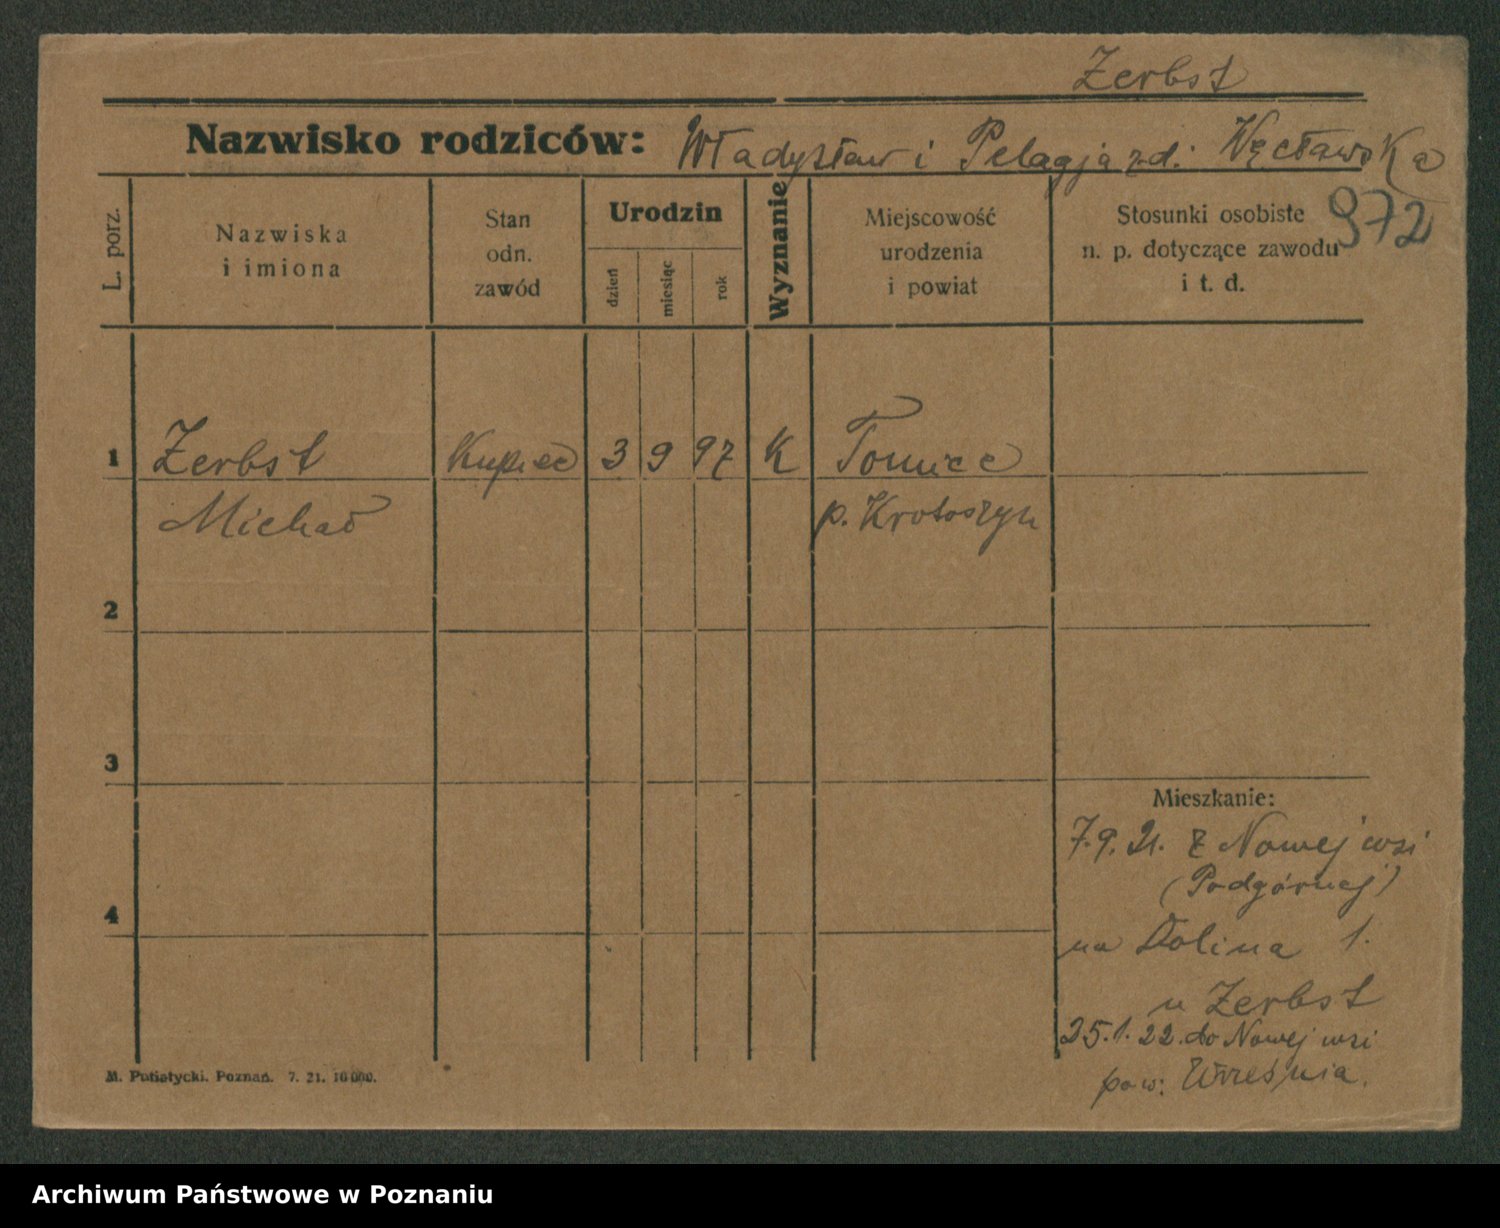 Zerbst
Nazwisko rodziców: Władysław i Pelagja zd. Węcławska
972
L. porz.
Nazwiska
i imiona
Stan
odn.
zawód
Urodzin
dzień
miesiąc
rok
Wyznanie
Miejscowość
urodzenia
i powiat
Stosunki osobiste
n. p. dotyczące zawodu
i t. d.
1 Zerbst Kupiec 3 9 97 K Tomice
Michał p. Krotoszyn
2
3
Mieszkanie:
7.9.21. z Nowej wsi
(Podgórnej)
4
na Dolina 1.
u Zerbst
25.1.22. do Nowej wsi
pow: Września.
M. Putiatycki. Poznań. 7. 21. 10000.
Archiwum Państwowe w Poznaniu